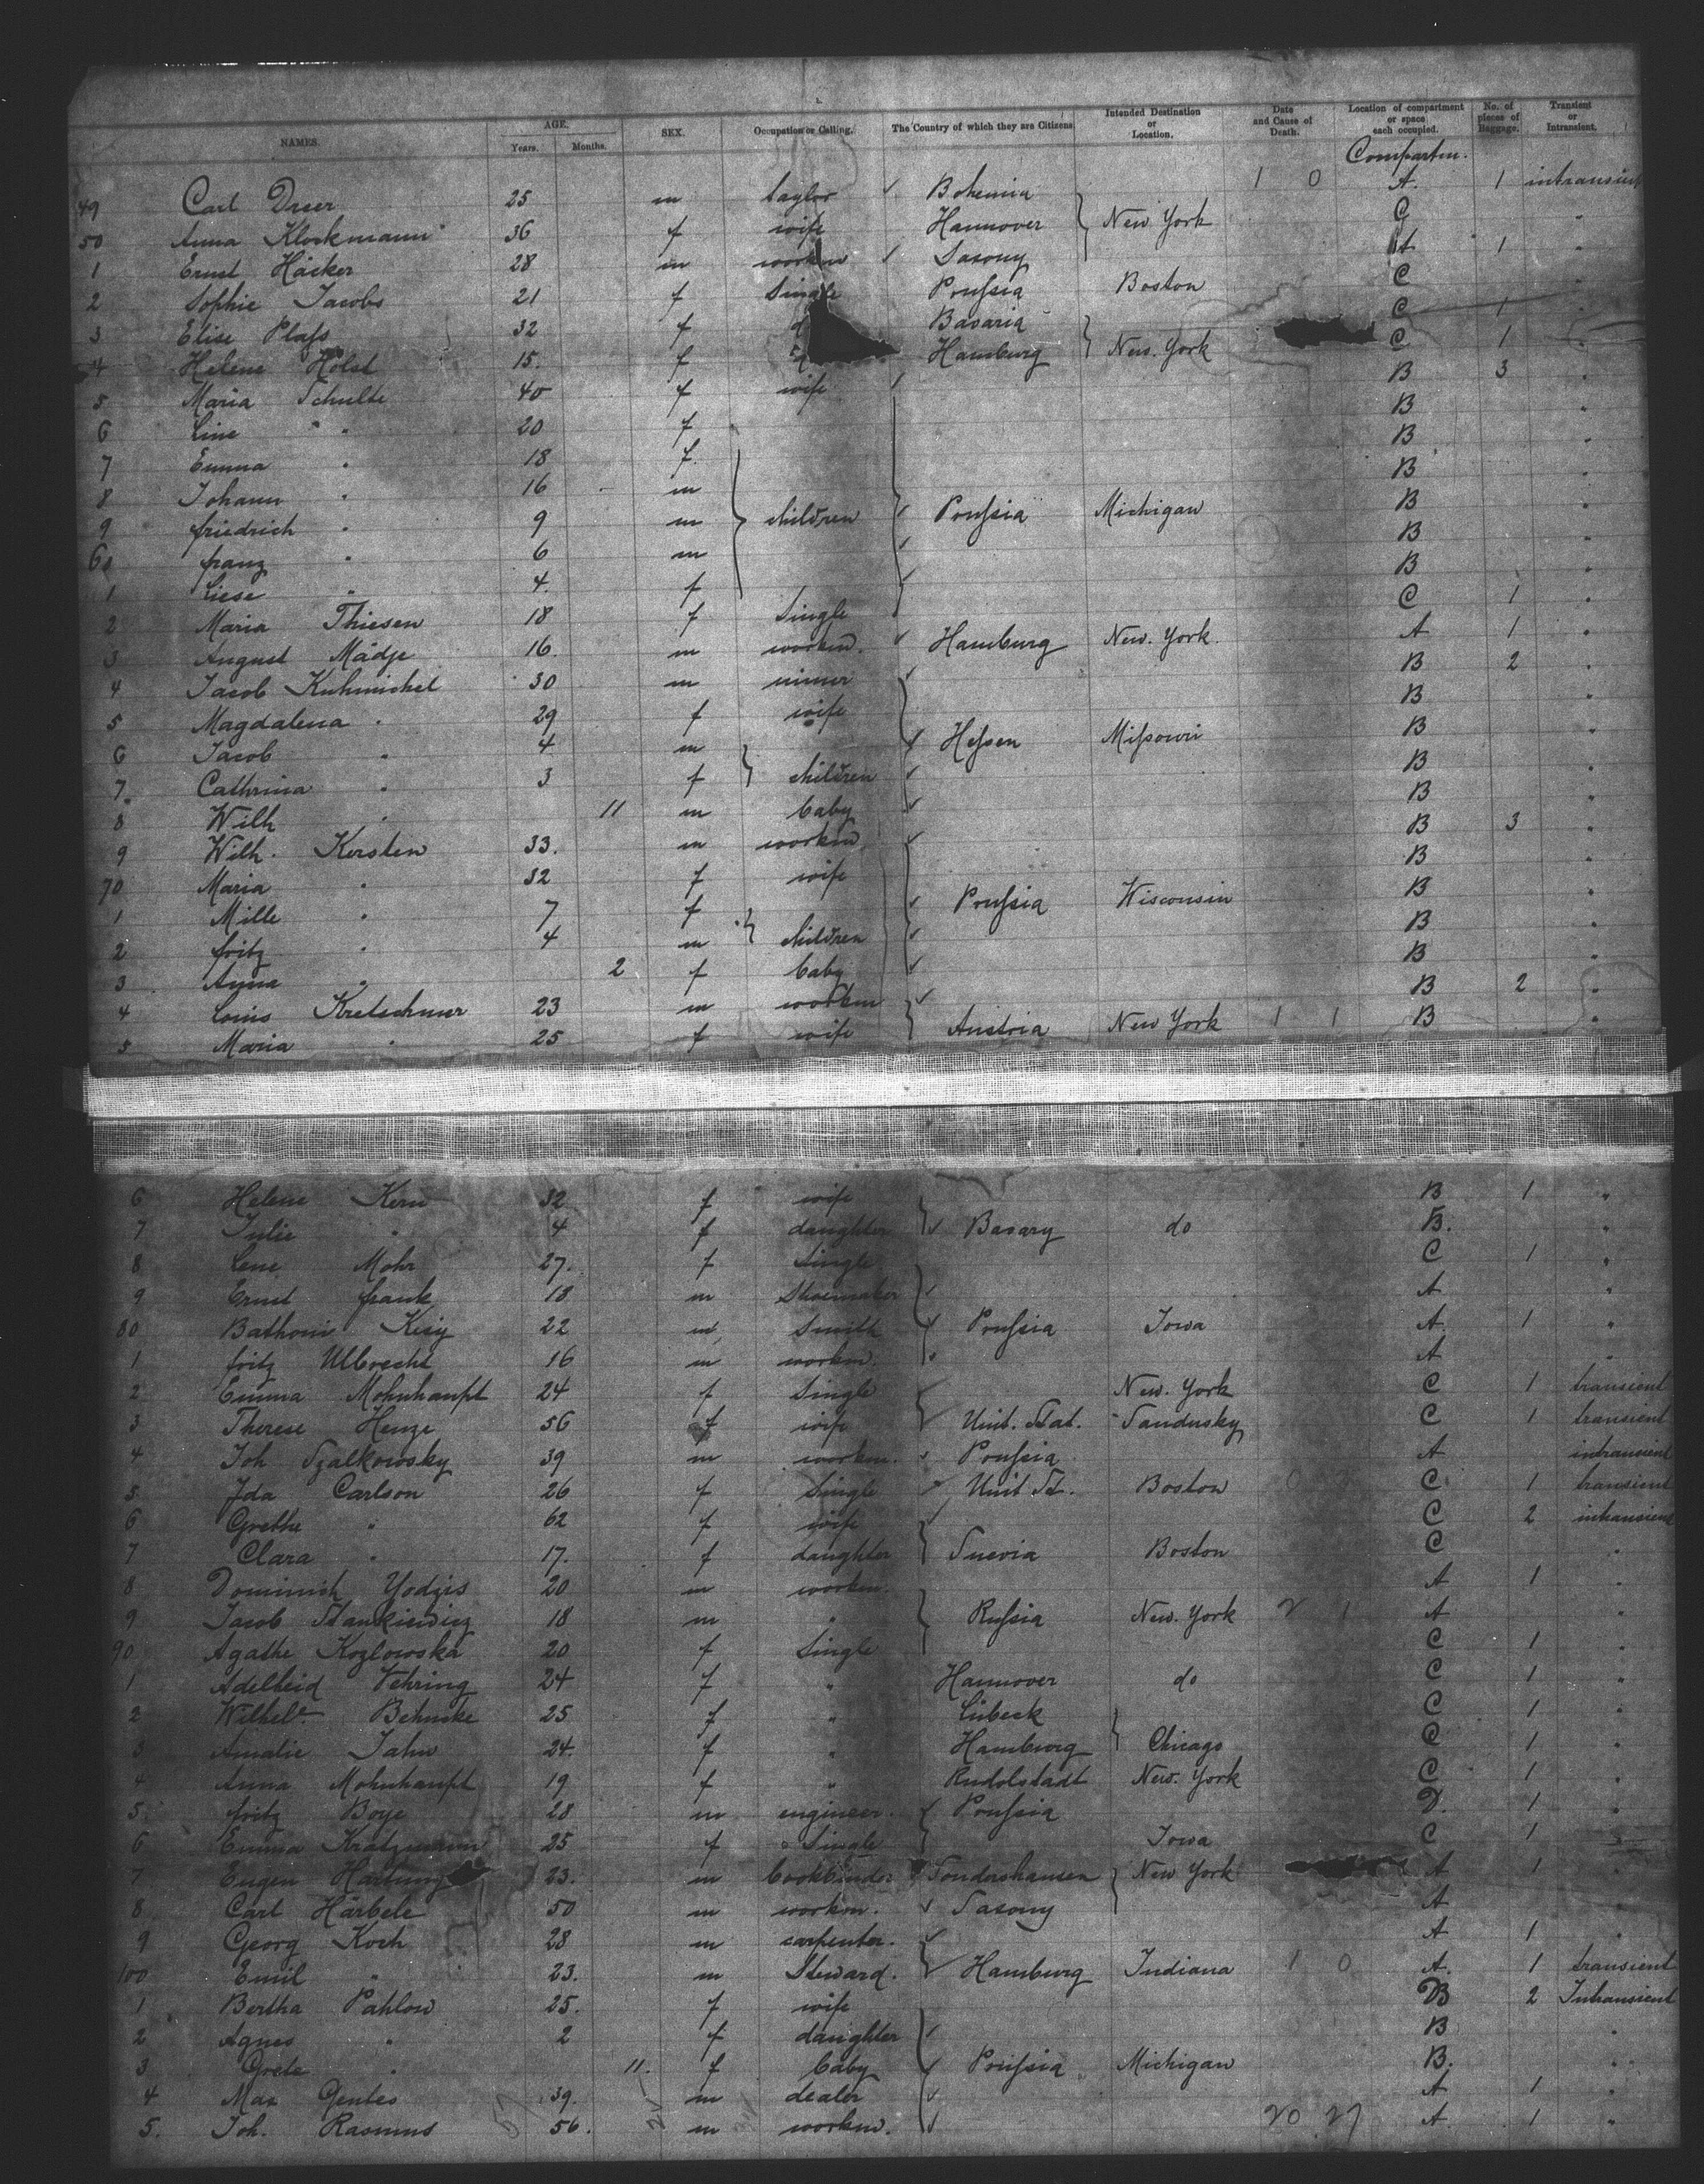 NAMES. AGE. Years. Months. SEX. Occupation or Calling. The Country of which they are Citizens Intended Destination or Location. Date and Cause of Death. Location of compartment or space each occupied. No. of pieces of Baggage. Transient or Intransient.
Compartm.
49 Carl Dreer 25 m taylor Bohemia 1 0 A. 1 intransient
50 Anna Klockmann 36 f wife Hannover New York C "
1 Ernst Häcker 28 m workm Saxony A 1 "
2 Sophie Jacobs 21 f Single Prussia Boston C "
3 Elise Plass 32 f Bavaria C 1 "
4 Helene Holst 15. f Hamburg New. York C 1 "
5 Maria Schulte 40 f wife B 3 "
6 Line " 20 f B "
7 Emma " 18 f. B "
8 Johann " 16 m B "
9 friedrich " 9 m children Prussia Michigan B "
60 franz " 6 m B "
1 Liese " 4. f B "
2 Maria Thiesen 18 f Single C 1 "
3 August Mädje 16. m workm. Hamburg New. York. A 1 "
4 Jacob Kuhmichel 30 m miner B 2 "
5 Magdalena " 29 f wife B "
6 Jacob " 4 m Hessen Missouri B "
7. Cathrina " 3 f children B "
8 Wilh " 11 m baby B "
9 Wilh. Kersten 33. m workm B 3 "
70 Maria " 32 f wife B "
1 Mille " 7 f Prussia Wisconsin B "
2 fritz " 4 m children B "
3 Anna " 2 f baby B "
4 Louis Kretschmer 23 m workm B 2 "
5 Maria " 25 f wife Austria New York 1 1 B "
6 Helene Kern 32 f wife B 1 "
7 Julie " 4 f daughter Bavary do B. "
8 Lene Mohr 27. f Single C 1 "
9 Ernst frank 18 m Shoemaker A "
80 Bathomi Kisiy 22 m Smith Prussia Iowa A 1 "
1 fritz Ulbrecht 16 m workm. A "
2 Emma Mohnhaupt 24 f Single New. York C 1 transient
3 Therese Henze 56 f wife Unit. Stat. Sandusky C 1 transient
4 Joh Szalkowsky 39 m workm. Prussia A intransient
5 Ida Carlson 26 f Single Unit St. Boston C 1 transient
6 Grethe " 62 f wife C 2 intransient
7 Clara " 17. f daughter Suevia Boston C "
8 Dominick Yodzis 20 m workm. A 1 "
9 Jacob Stankiewicz 18 m " Russia New. York 2 1 A "
90 Agathe Kozlowska 20 f Single C 1 "
1 Adelheid Vehring 24 f " Hannover do C 1 "
2 Wilhele. Behncke 25 f " Lübeck C 1 "
3 Amalie Jahn 24. f " Hamburg Chicago C 1 "
4 Anna Mohnhaupt 19 f " Rudolstadt New. York C 1 "
5. fritz Boye 28 m engineer. Prussia D. 1 "
6 Emma Kratzmann 25 f Single Iowa C 1 "
7 Eugen Hartung 23. m bookbinder Sondershausen New York A 1 "
8 Carl Härbele 50 m workm. Saxony A "
9 Georg Koch 28 m carpenter. A 1 "
100 Emil " 23. m Steward. Hamburg Indiana 1 0 A. 1 transient
1 Bertha Pahlow 25. f wife B 2 Intransient
2 Agnes " 2 f daughter B "
3 Grete " 11. f baby Prussia Michigan B. "
4 Max Gentes 39. m dealer A 1 "
5. Joh. Rasmus 56. m workm. 20 27 A. 1 "